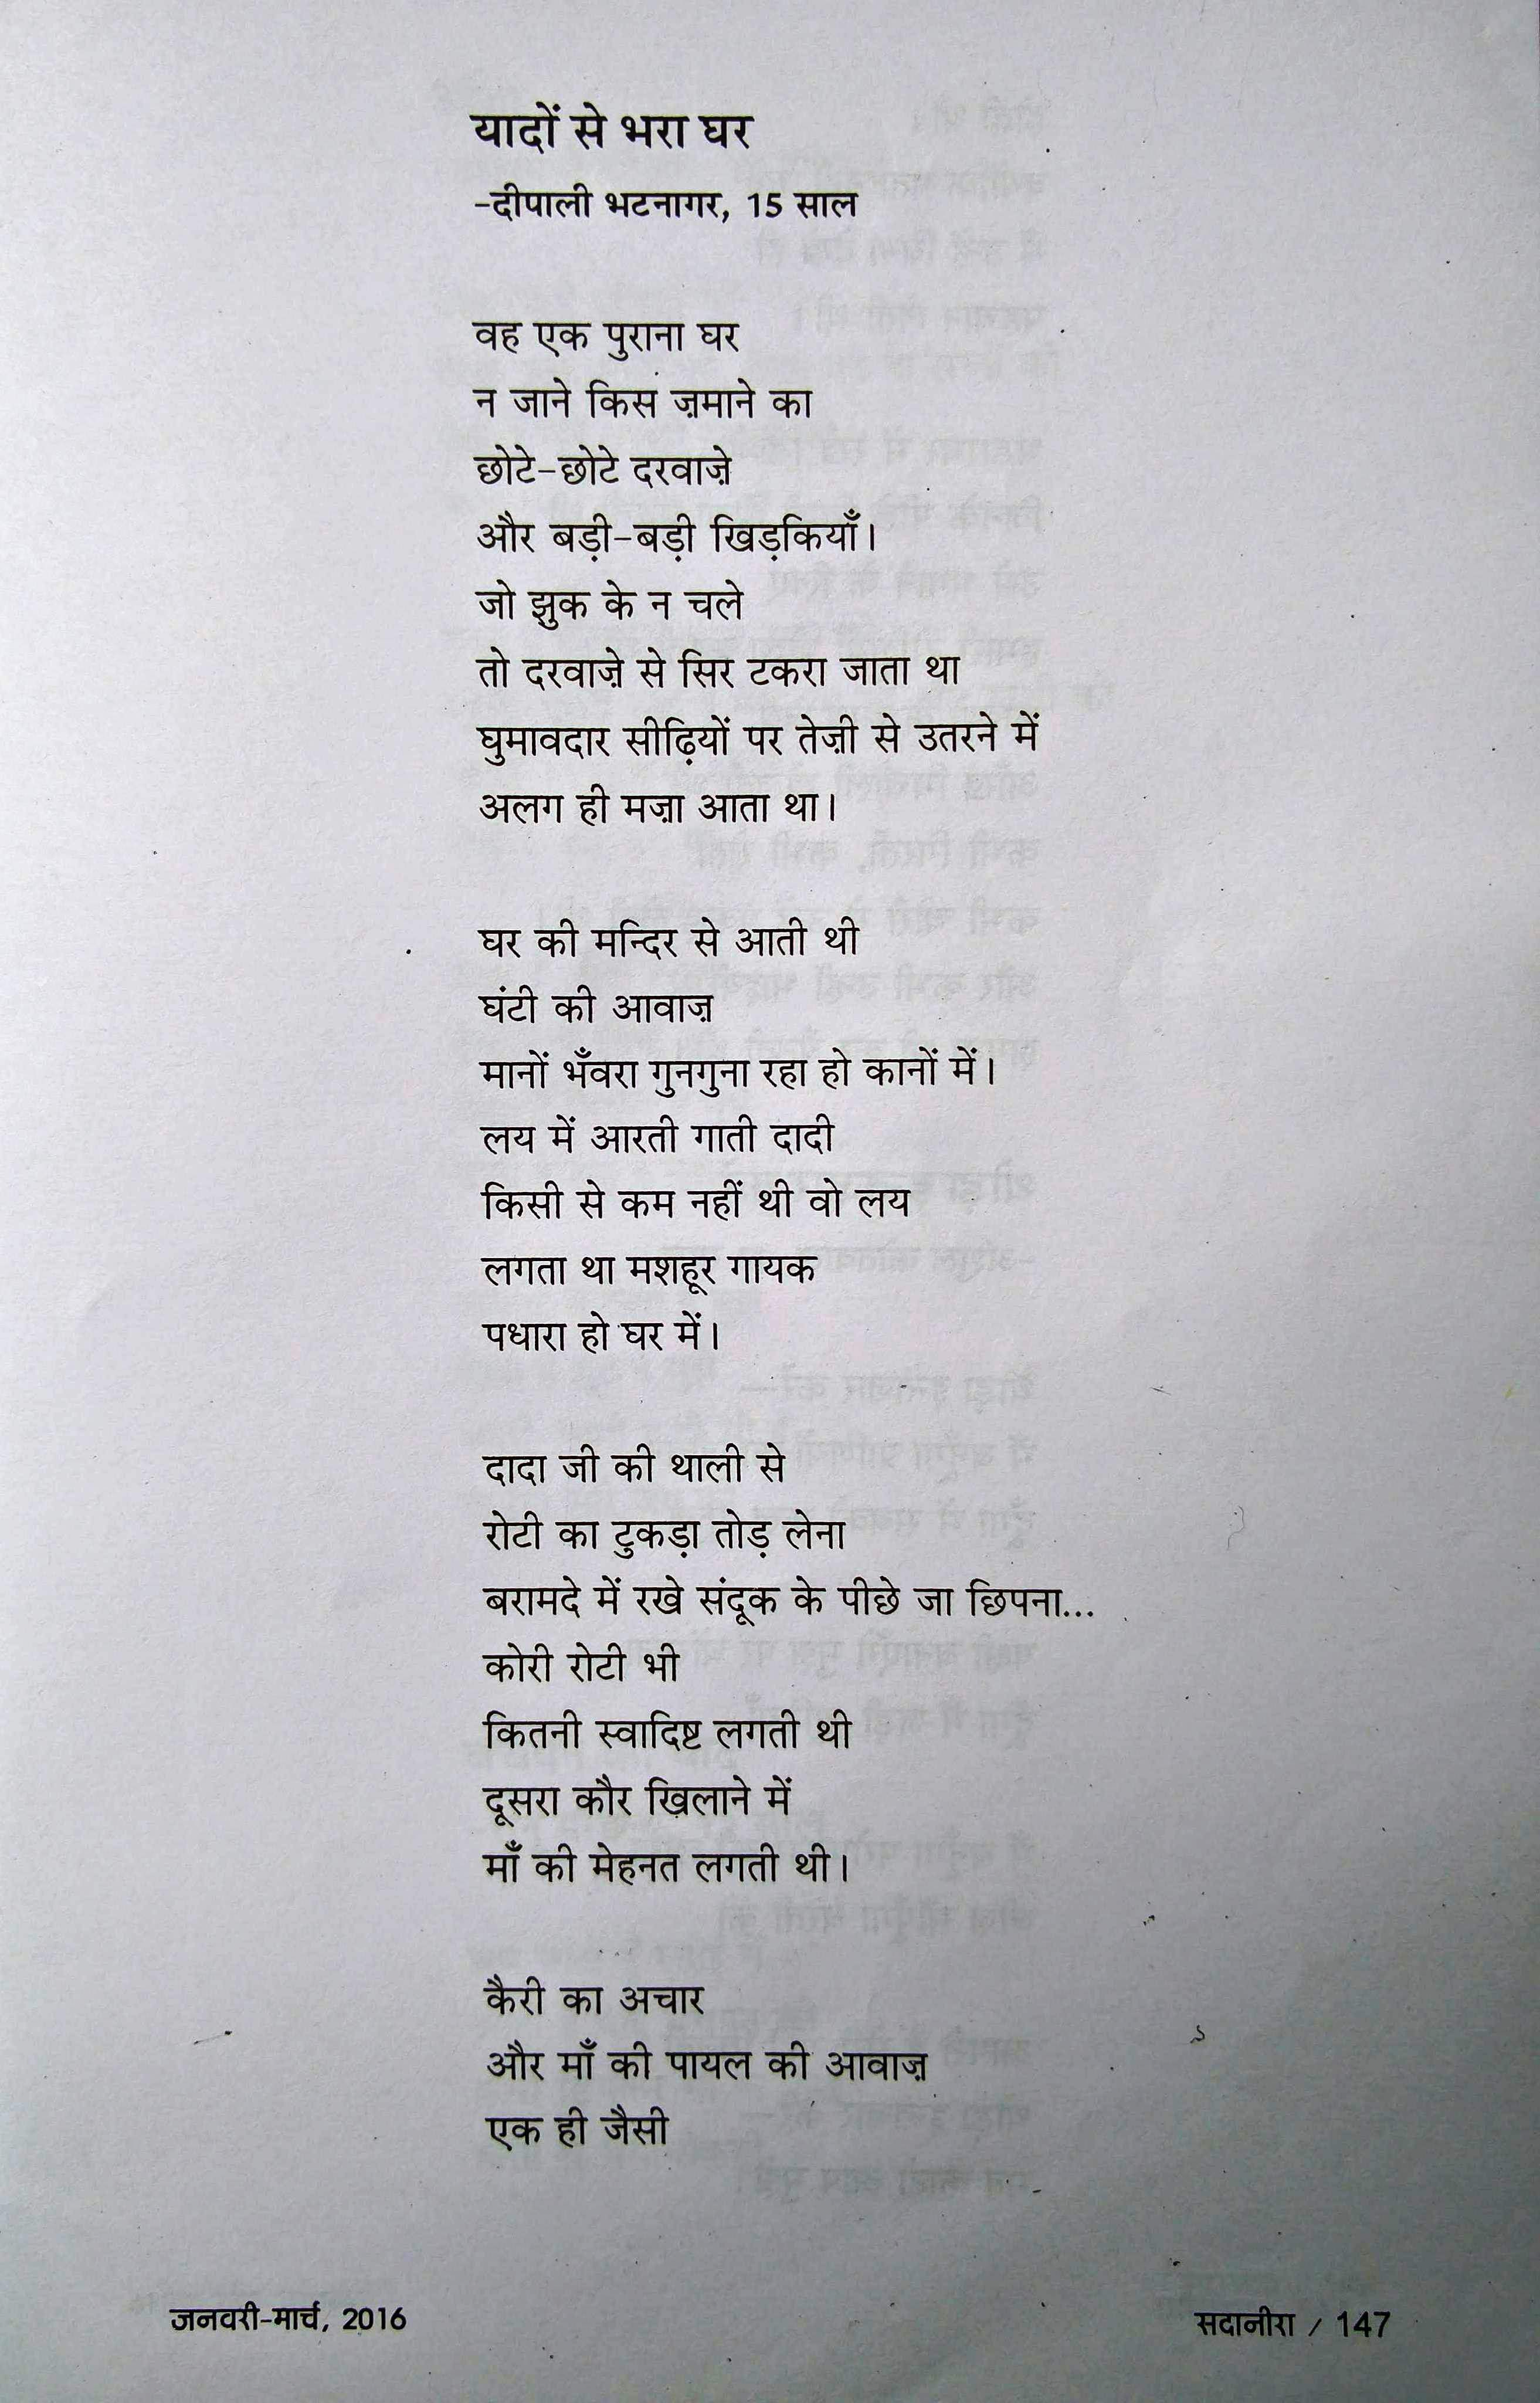 यादों से भरा घर
-दीपाली भटनागर, 15 साल
वह एक पुराना घर
न जाने किस ज़माने का
छोटे-छोटे दरवाज़े
और बड़ी-बड़ी खिड़कियाँ।
जो झुक के न चले
तो दरवाज़े से सिर टकरा जाता था
घुमावदार सीढ़ियों पर तेज़ी से उतरने में
अलग ही मज़ा आता था।
घर की मन्दिर से आती थी
घंटी की आवाज़
मानों भँवरा गुनगुना रहा हो कानों में।
लय में आरती गाती दादी
किसी से कम नहीं थी वो लय
लगता था मशहूर गायक
पधारा हो घर में।
दादा जी की थाली से
रोटी का टुकड़ा तोड़ लेना
बरामदे में रखे संदूक के पीछे जा छिपना...
कोरी रोटी भी
कितनी स्वादिष्ट लगती थी
दूसरा कौर खिलाने में
माँ की मेहनत लगती थी।
कैरी का अचार
और माँ की पायल की आवाज़
एक ही जैसी
जनवरी-मार्च, 2016
सदानीरा / 147